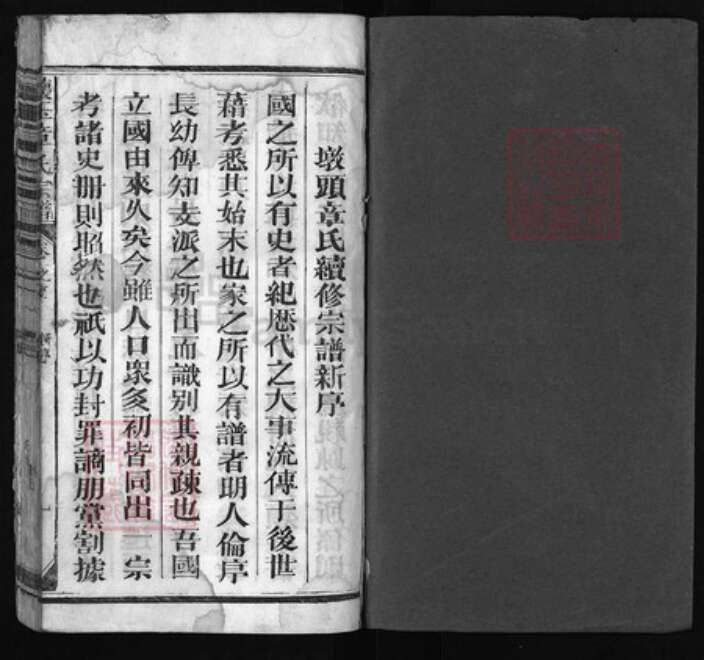 墩頭章氏續修宗譜新序
國之所以有史者紀歷代之大事流傳于後世
藉考悉其始末也家之所以有譜者明人倫序
長幼俾知支派之所出而識別其親疎也吾國
立國由來久矣今雖人口眾多初皆同出一宗
考諸史冊則昭然也祇以功封罪謫朋黨割據
章氏宗譜